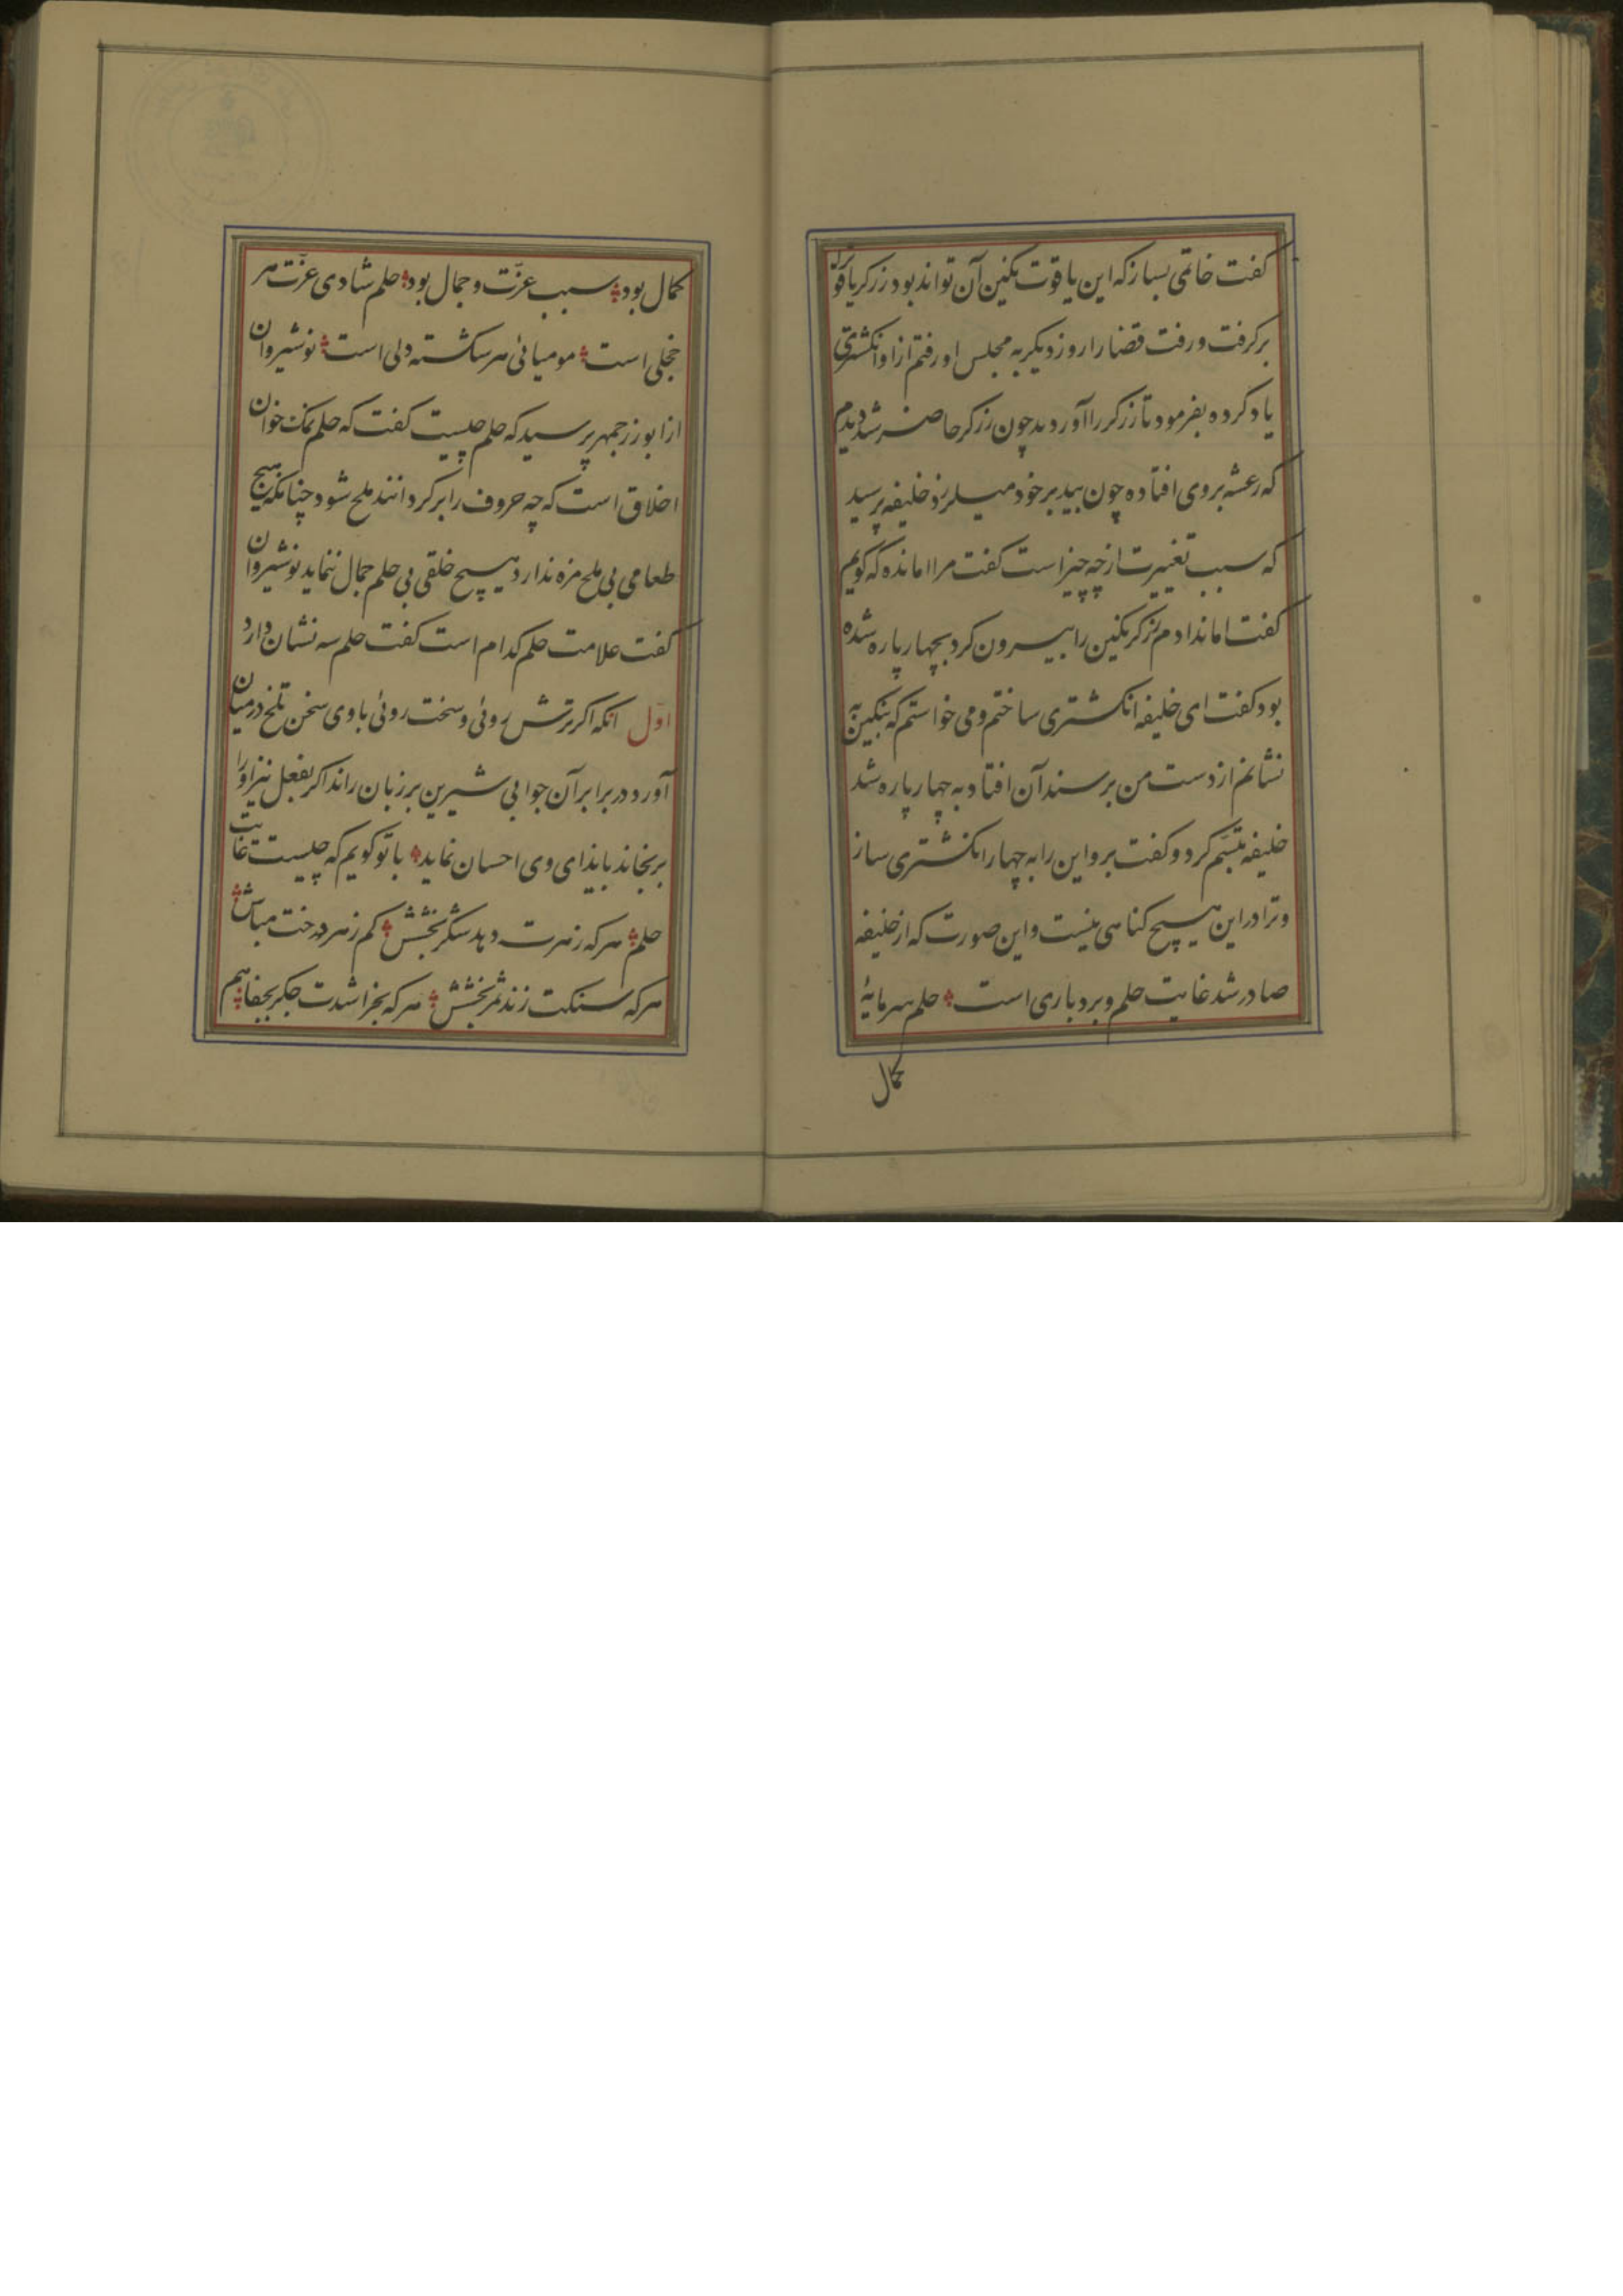 کفت خاتمی بساز که این یاقوت نکین آن تواند بود زرکر یاقوترا
برکرفت و رفت قضا را روز دیکر به مجلس او رفتم از او انکشتری
یاد کرده بفرمود تا زرکر را آوردید چون زرکر حاضر شد دیدم
که رعشه بروی افتاده چون بید بر خود میلرزد خلیفه پرسید
که سبب تغییرت از چه چیز است کفت مرا امانده که کویم
کفت اماندادم زرکر نکین را بیرون کرد بچهار پاره شده
بود کفت ای خلیفه انکشتری ساختم و می خواستم که نکین به
نشانم از دست من بر سندان افتاد به چهار پاره شد
خلیفه تبسّم کرد و کفت برو این را به چهار انکشتری ساز
و ترا در این هیچ کناهی نیست و این صورت که از خلیفه
صادر شد غایت حلم و بردباری است حلم سرمایهٔ
کمال
کمال بود سبب عزّت و جمال بود حلم شادی عزّت هر
خجلی است مومیائی هر شکسته دلی است نوشیروان
از ابوزرجمهر پرسید که حلم چیست کفت که حلم نمک خوان
اخلاق است که چه حروف را برکردانند ملح شود چنانکه هیچ
طعامی بی ملح مزه ندارد هیچ خلقی بی حلم جمال ننماید نوشیروان
کفت علامت حلم کدام است کفت حلم سه نشان دارد
اوّل انکه اکر ترش روئی و سخت روئی با وی سخن تلخ در میان
آورد در برابر آن جوابی شیرین بر زبان راند اکر بفعل نیز او را
برنجاند بایذای وی احسان نماید با تو کویم که چیست غایت
حلم هر که زهرت دهد شکر بخشش کم ز درخت مباش
هر که سنکت زند ثمر بخشش هر که بخراشدت جکر بجفا هم